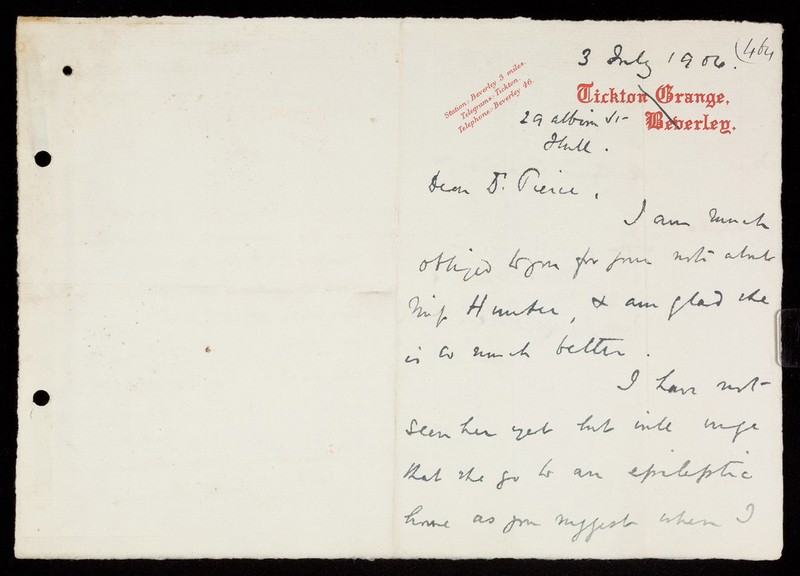 (464
3 July 1906.
Station: Beverley 3 miles.
Telegrams: Tickton.
Telephone: Beverley 46.
Tickton Grange,
Beverley.
29 Albion St
Hull.
Dear Dr. Pierce,
I am much
obliged to you for your note about
Miss Hunter, & am glad she
is so much better.
I have not
seen her yet but will urge
that she go to an epileptic
home as you suggest when I